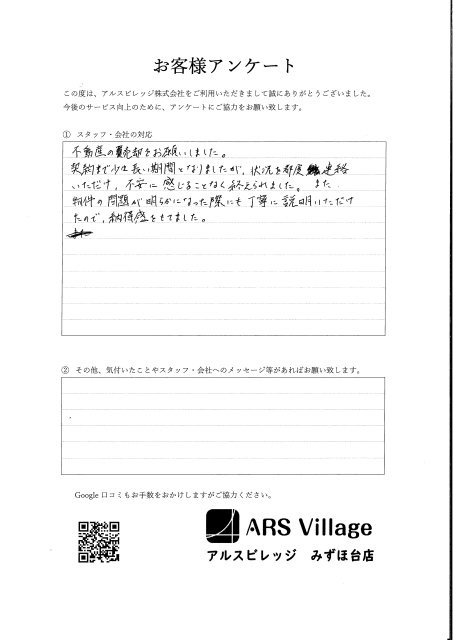 お客様アンケート
この度は、アルスビレッジ株式会社をご利用いただきまして誠にありがとうございました。
今後のサービス向上のために、アンケートにご協力をお願い致します。
① スタッフ・会社の対応
不動産の売却をお願いしました。
契約まで少し長い期間となりましたが、状況を都度連絡
いただけ、不安に感じることなく終えられました。また
物件の問題が明らかになった際にも丁寧に説明いただけ
たので、納得感をもてました。
② その他、気付いたことやスタッフ・会社へのメッセージ等があればお願い致します。
Google 口コミもお手数をおかけしますがご協力ください。
ARS Village
アルスビレッジ みずほ台店